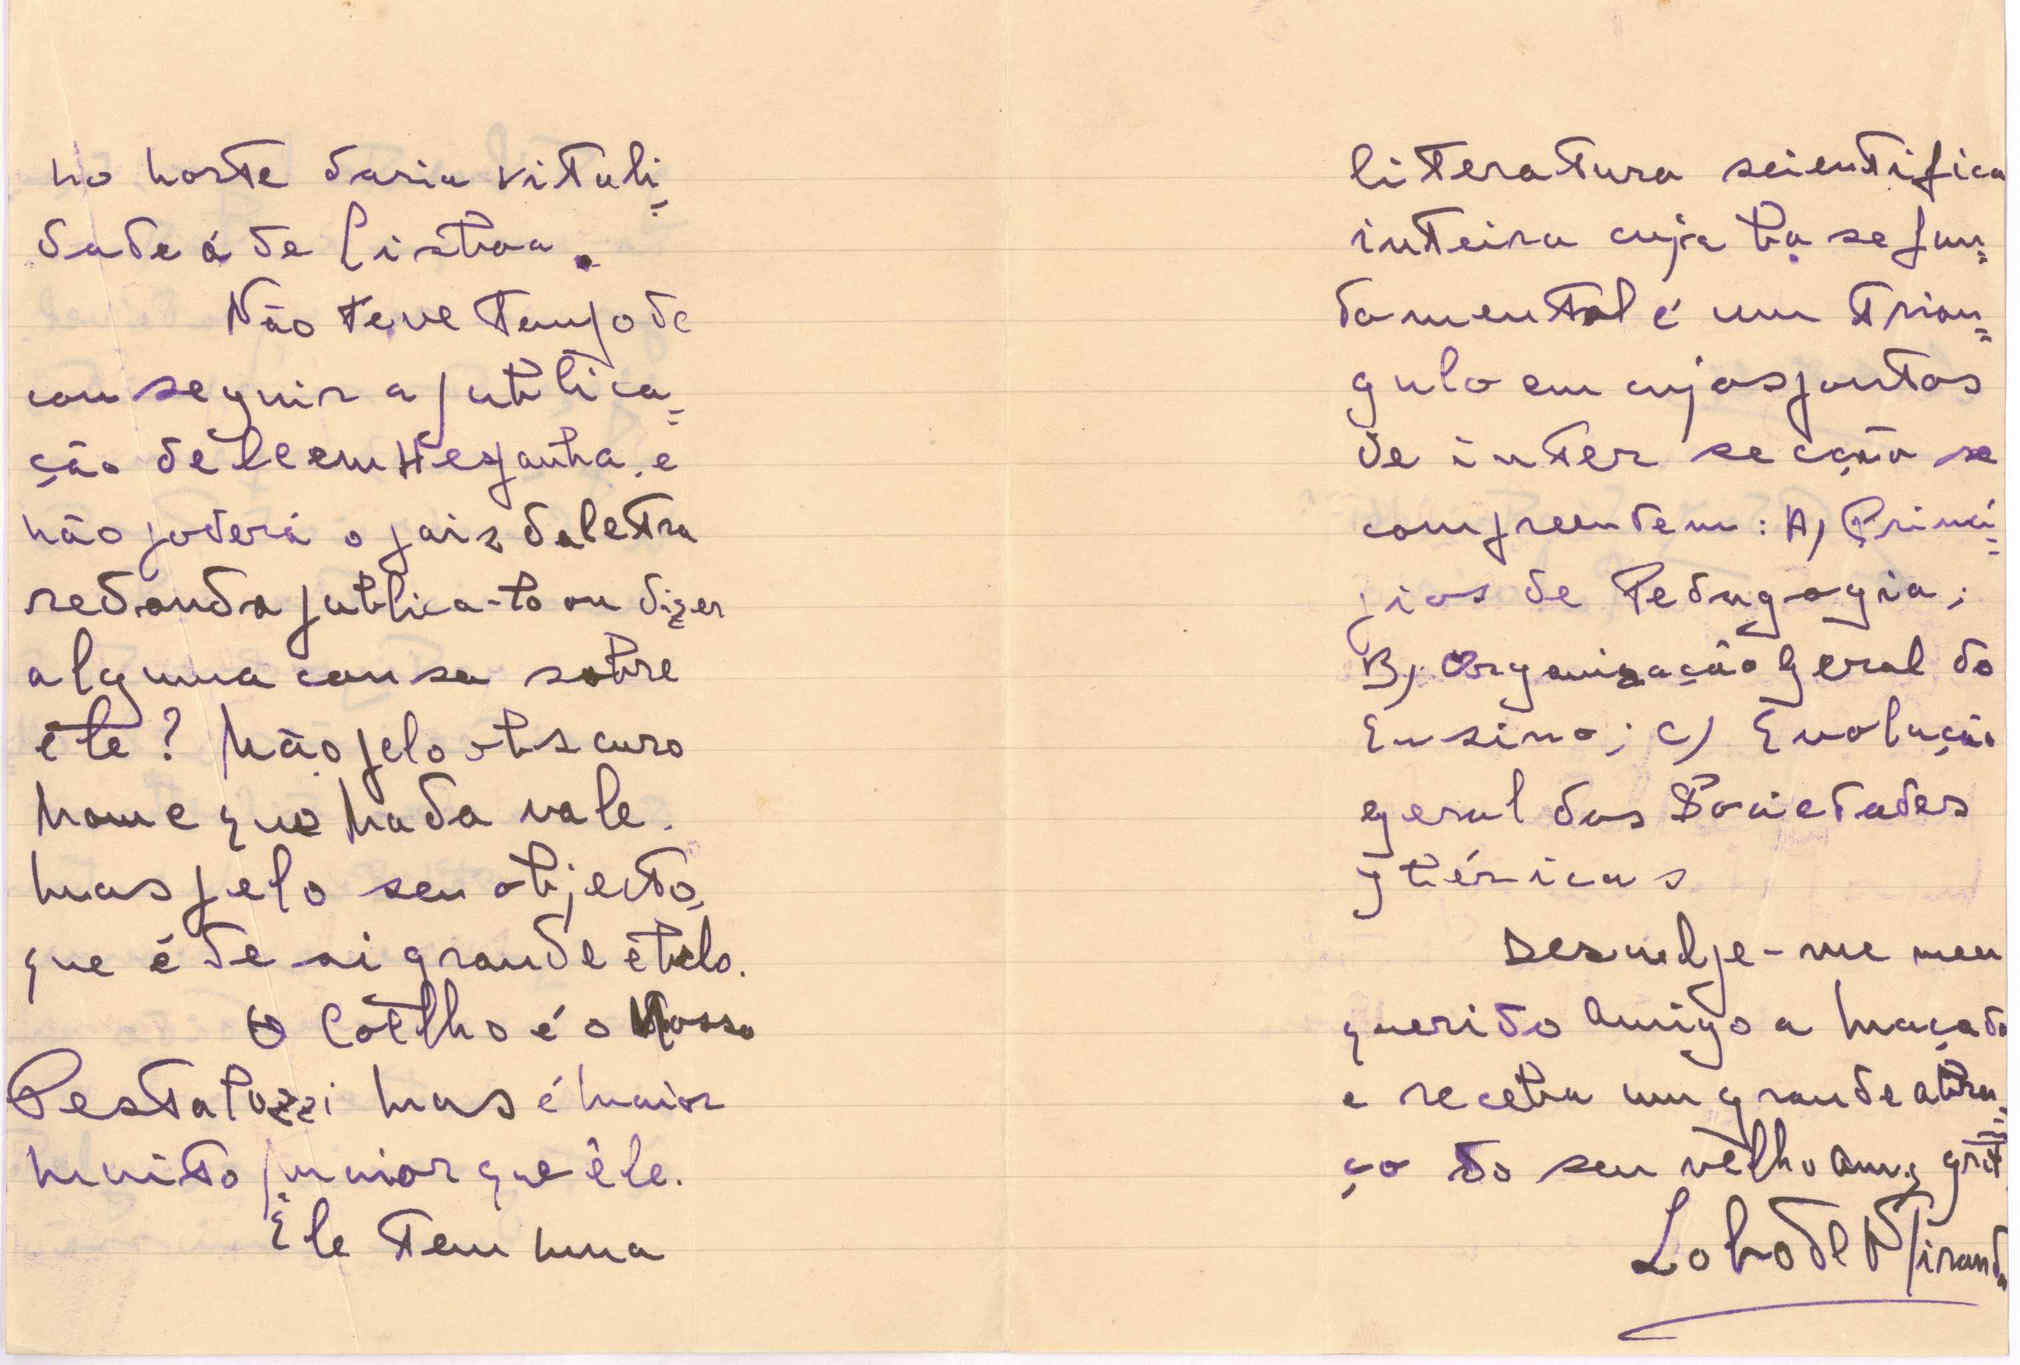 no norte daria vitali-
dade á de Lisboa.
Não teve tempo de
conseguir a publica-
ção dele em Hespanha, e
não poderá o paiz da letra
redonda publica-lo ou dizer
alguma cousa sobre
êle? Não pelo obscuro
nome que nada vale.
mas pelo seu objecto,
que é de si grande e belo.
O Coelho é o Nosso
Pestalozzi mas é maior
muito maior que êle.
Êle tem uma
literatura scientifica
inteira cuja base fun-
damental é um trian-
gulo em cujos pontos
de inter secção se
compreendem: A) Princi-
pios de Pedagogia;
B) Organização geral do
Ensino; C) Evolução
geral das Sociedades
Ibéricas
Desculpe-me meu
querido amigo a maçada
e receba um grande abra-
ço do seu velho amº grt
Lobo de Miranda